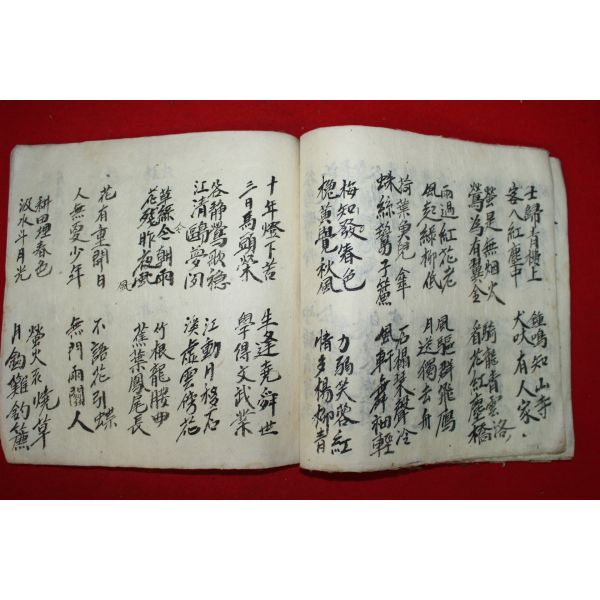 士歸青樓上
客入紅塵中
鍾鳴知山寺
犬吠有人家
螢是無烟火
鶯為有翼金
騎龍青雲洛
看花紅塵橋
雨過紅花老
風起綠柳低
風驅群飛鴈
月送獨去舟
荷葉兒傘
蛛絲子簾
石榻琴聲冷
風軒舞袖輕
梅知發春色
槐黃覺秋風
力弱芙蓉紅
情多楊柳青
十年燈下苦
三日馬頭榮
生逢堯舜世
學得文武業
谷静鶯歌穩
江清鷗夢闲
江動月移石
溪虛雲傍花
草綠今朝雨
花發昨夜風
竹根龍腰曲
蕉葉鳳尾長
花有重開日
人無更少年
不語花引蝶
無門雨關人
耕田埋春色
汲水斗月光
螢火不燒草
月鉤難釣簾